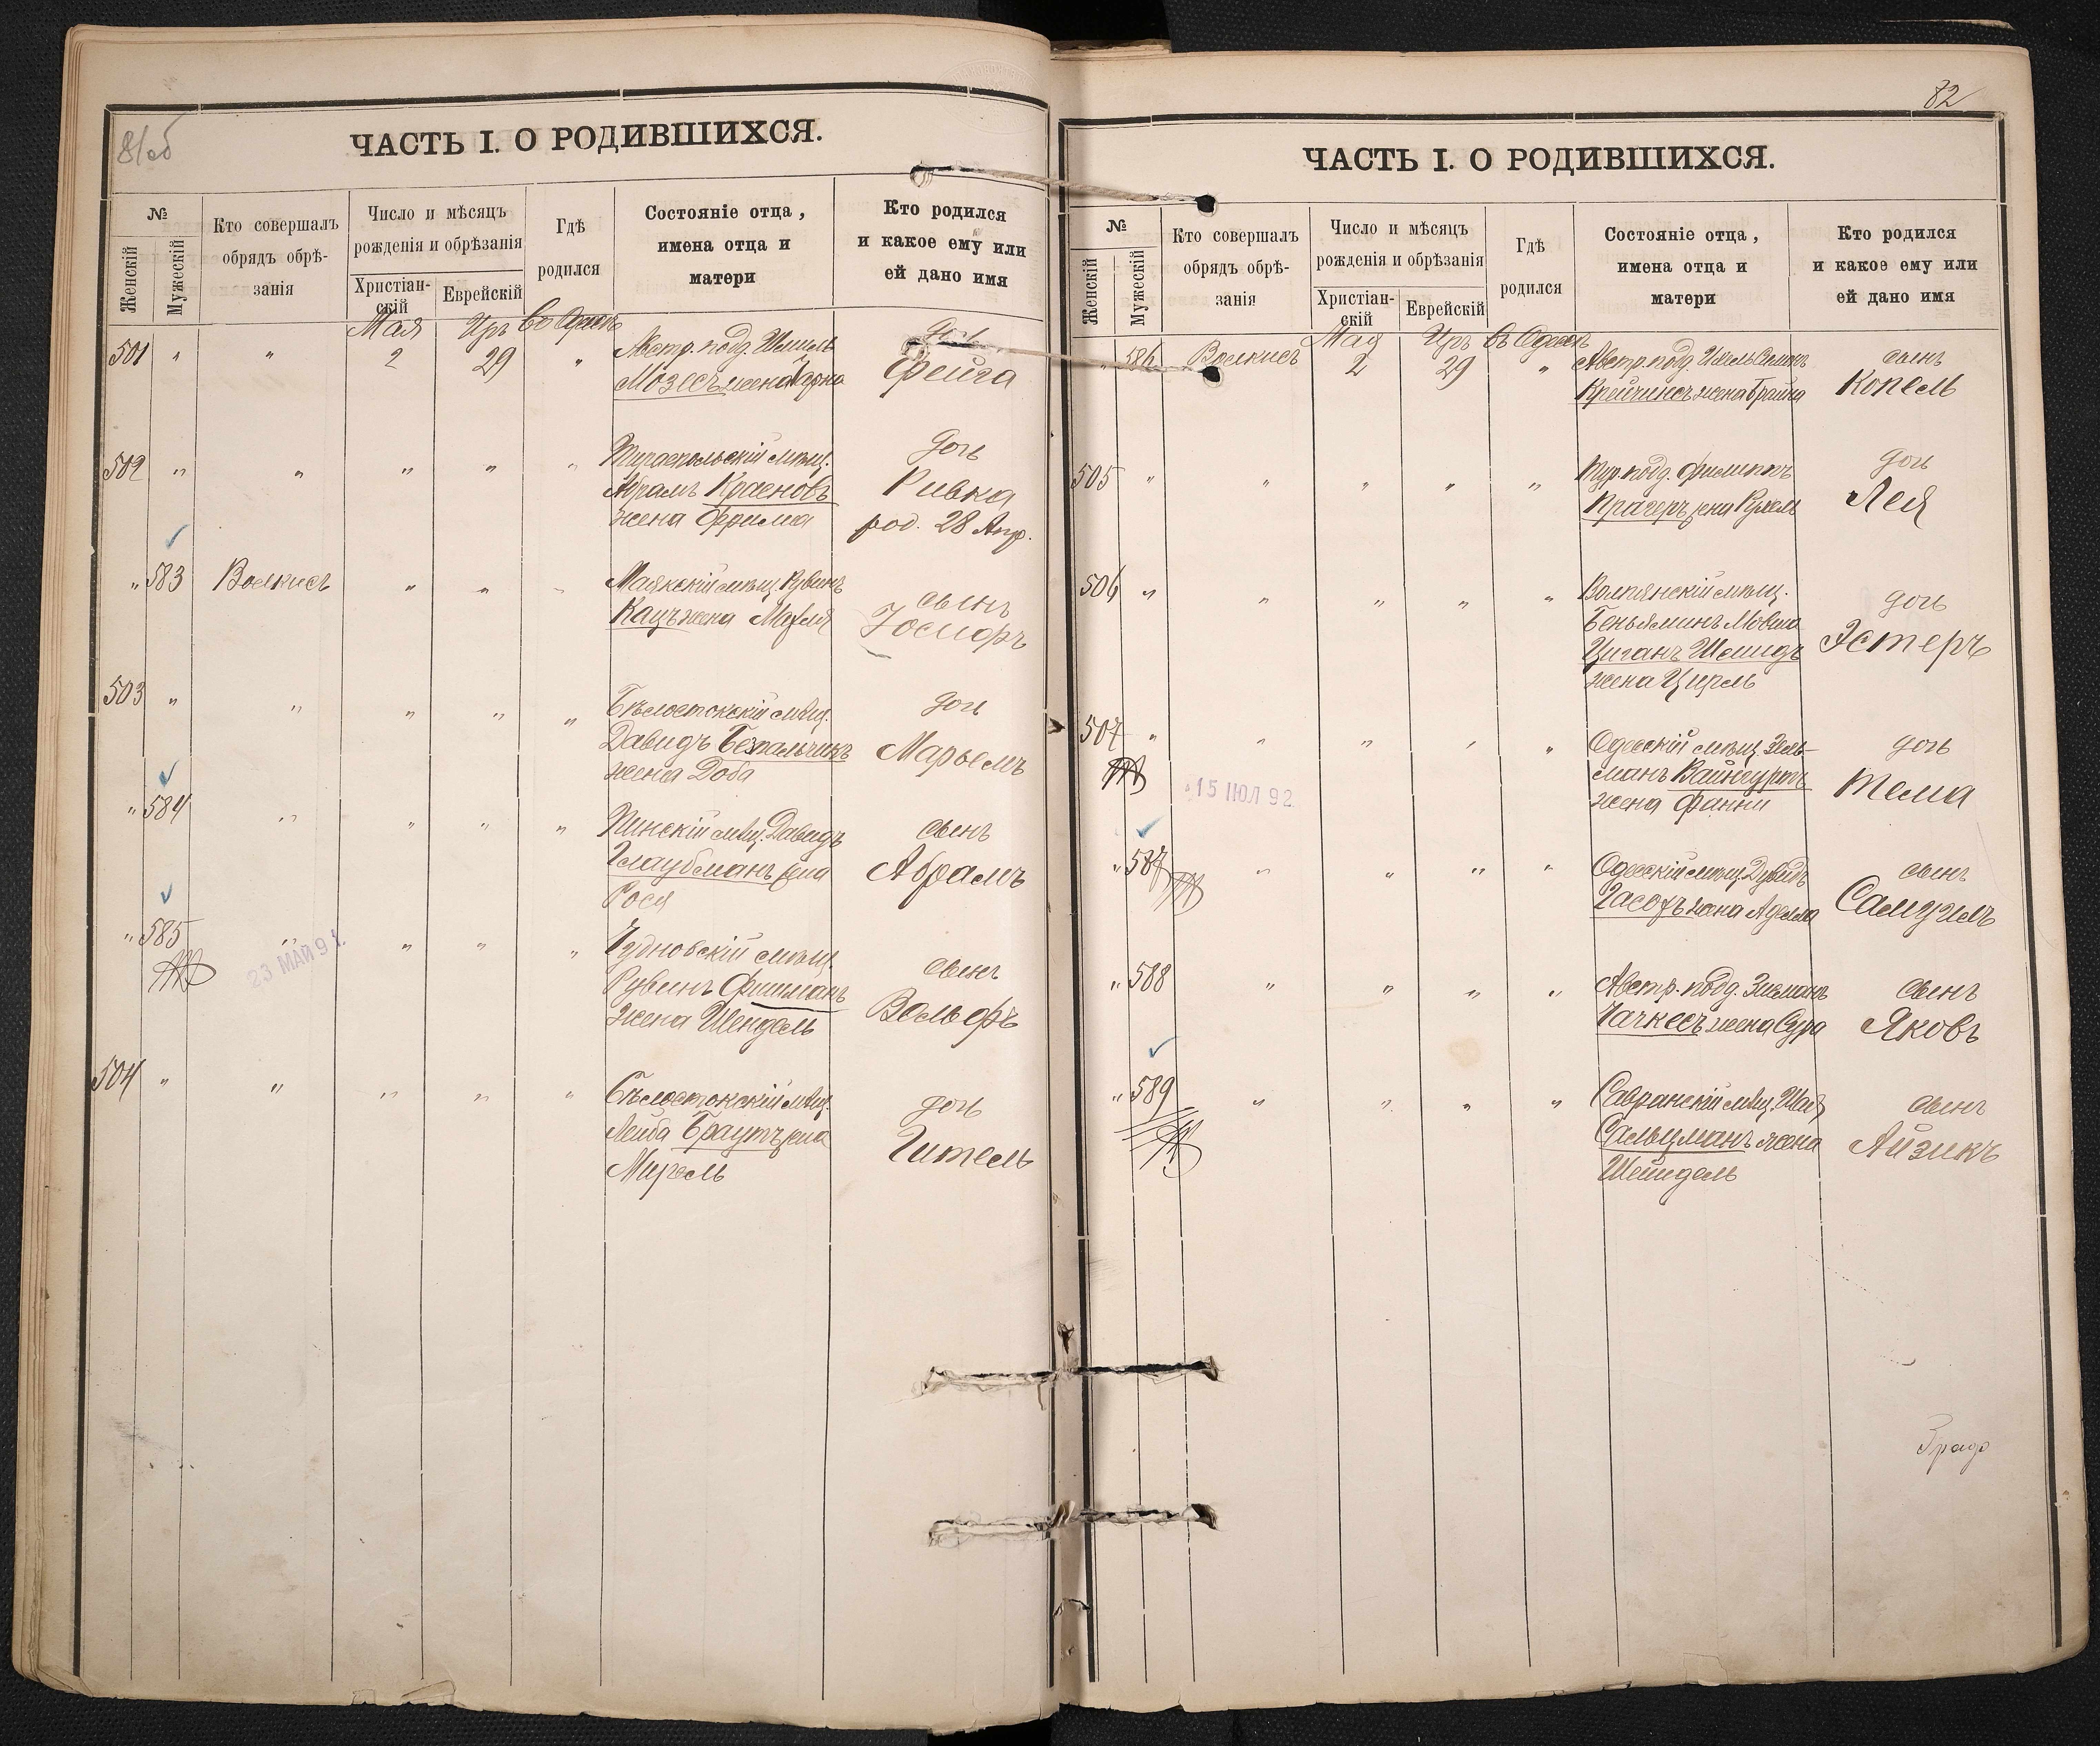 81об
ЧАСТЬ I. О РОДИВШИХСЯ.
№
Женскій
Мужескій
Кто совершалъ обрядъ обрѣ-занія
Число и мѣсяцъ рожденія и обрѣзанія
Христіан-скій
Еврейскій
Гдѣ родился
Состояніе отца, имена отца и матери
Кто родился и какое ему или ей дано имя
Мая Иръ въ Одессѣ
501 " " 2 29 " Австр. подд. Шмиль дочь
Мозесъ жена Фейга
502 " " " " " Тираспольскій мѣщ. дочь
Абрамъ Красновъ Ривка
жена Фрима род. 28 Апр.
" 583 Волкисъ " " " Маякскій мѣщ. Рувинъ сынъ
Кацъ жена Іосифъ
503 " " " " " Бѣлостокскій мѣщ. дочь
Давидъ Безпальчикъ Марьемъ
жена Доба
" 584 " " " " Пинскій мѣщ. Давидъ сынъ
Глаубманъ жена Абрамъ
Рося
" 585 " " " " Чудновскій мѣщ. сынъ
23 МАЙ 91.
Рувинъ Фишманъ Вольфъ
жена Шендель
504 " " " " " Бѣлостокскій мѣщ. дочь
Лейба Браутъ жена Гитель
Мирель
82
ЧАСТЬ I. О РОДИВШИХСЯ.
№
Женскій
Мужескій
Кто совершалъ обрядъ обрѣ-занія
Число и мѣсяцъ рожденія и обрѣзанія
Христіан-скій
Еврейскій
Гдѣ родился
Состояніе отца, имена отца и матери
Кто родился и какое ему или ей дано имя
Мая Иръ въ Одессѣ
" 586 Волкисъ 2 29 " Австр. подд. сынъ
жена Копель
505 " " " " " Тур. подд. Филиппъ дочь
Прагеръ жена Лея
506 " " " " " мѣщ. дочь
Беньяминъ Мовша Эстеръ
Циганъ Шмидъ
жена Цирль
507 " " " " " Одесскій мѣщ. Зель- дочь
15 ІЮЛ 92
манъ Вайнгуртъ Тема
жена Фанни
" 587 " " " " Одесскій мѣщ. Дувидъ сынъ
жена Аделла Самуилъ
" 588 " " " " Австр. подд. Зисманъ сынъ
Чачкесъ жена Сура Яковъ
" 589 " " " " Савранскій мѣщ. Шая сынъ
Сальцманъ жена Айзикъ
Шейндель